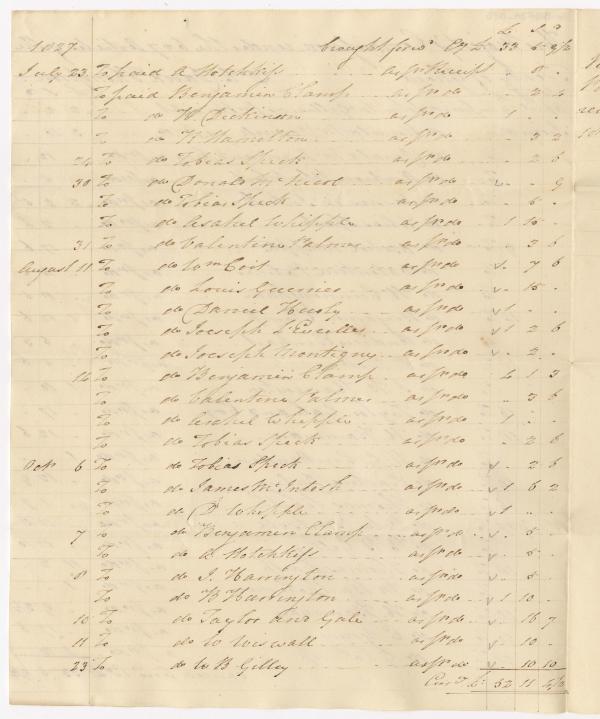 £ S D
1827 brought forwd Cy £ 33 6 2½
July 23 To paid A Hotchkiss as pr Receipt " 8 "
To paid Benjamin Clamp as pr do 2
To do H Dickinson as pr do 1 " "
To do H Hamilton as pr do " 3 2
24 To do Tobias Speck as pr do 2 6
30 To do Donald McNicol as pr do
To do Tobias Speck as pr do 6 "
To do Asahel Whipple as pr do 1 10 "
31 To do Valentine Palmer as pr do " 3 6
August 11 To do Wm Coit as pr do 7 6
To do Louis Guernier as pr do 15 "
To do Daniel as pr do 1 " "
To do Joeseph as pr do 1 2 6
To do Joeseph Montigny as pr do 2 "
14 To do Benjamin Clamp as pr do 4 1 3
To do Valentine Palmer as pr do " 3 6
To do Asahel Whipple as pr do 1 " "
To do Tobias Speck as pr do " 2 6
Octr 6 To do Tobias Speck as pr do 2 6
To do James McIntosh as pr do 1 6 2
To do D Whipple as pr do 1 " "
7 To do Benjamin Clamp as pr do 5 "
To do A Hotchkiss as pr do 5 "
8 To do J. Harrington as pr do 5 "
To do H Harrington as pr do 1 10 "
10 To do Taylor and Gale as pr do 16 7
11 To do W Wiswall as pr do 10 "
23 To do W B Gilley as pr do 10 10
£ 52 11 4½